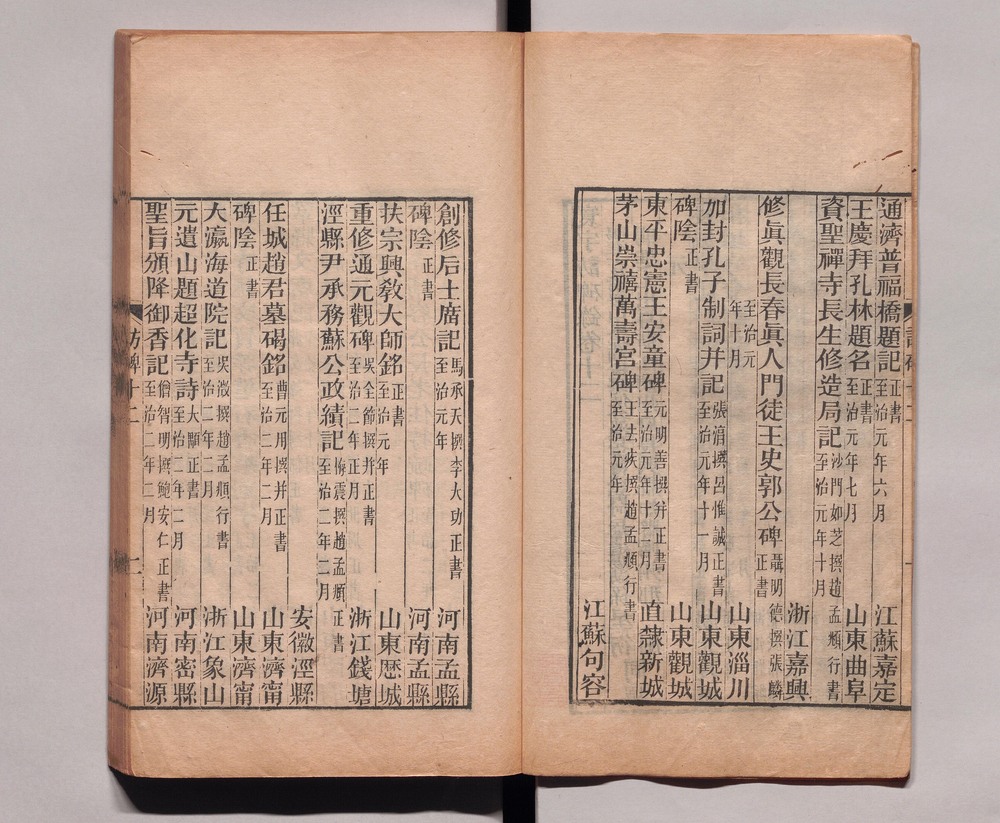 通濟普福橋題記 正書 至治元年六月 江蘇嘉定
王慶拜孔林題名 正書 至治元年七月 山東曲阜
資聖禪寺長生修造局記 沙門如芝撰趙孟頫行書 至治元年十月
浙江嘉興
修眞觀長春眞人門徒王史郭公碑 聶明德撰張麟 正書
至治元年十月 山東淄川
加封孔子制詞并記 張湑撰呂惟誠正書 至治元年十一月 山東觀城
碑陰 正書 山東觀城
東平忠憲王安童碑 元明善撰并正書 至治元年十二月 直隸新城
茅山崇禧萬壽宮碑 王去疾撰趙孟頫行書 至治元年
江蘇句容
創修后土廟記 馬承天撰李大功正書 至治元年 河南孟縣
碑陰 正書 河南孟縣
扶宗興敎大師銘 正書 至治元年 山東歷城
重修通元觀碑 吳全節撰并正書 至治二年正月 浙江錢塘
涇縣尹承務蘇公政績記 梅震撰趙孟頫正書 至治二年二月
安徽涇縣
任城趙君墓碣銘 曹元用撰并正書 至治二年二月 山東濟甯
碑陰 正書 山東濟甯
大瀛海道院記 吳澂撰趙孟頫行書 至治二年二月 浙江象山
元遺山題超化寺詩 大顯正書 至治二年二月 河南密縣
聖旨頒降御香記 僧智明撰鮑安仁正書 至治二年二月 河南濟源
訪碑十二 二